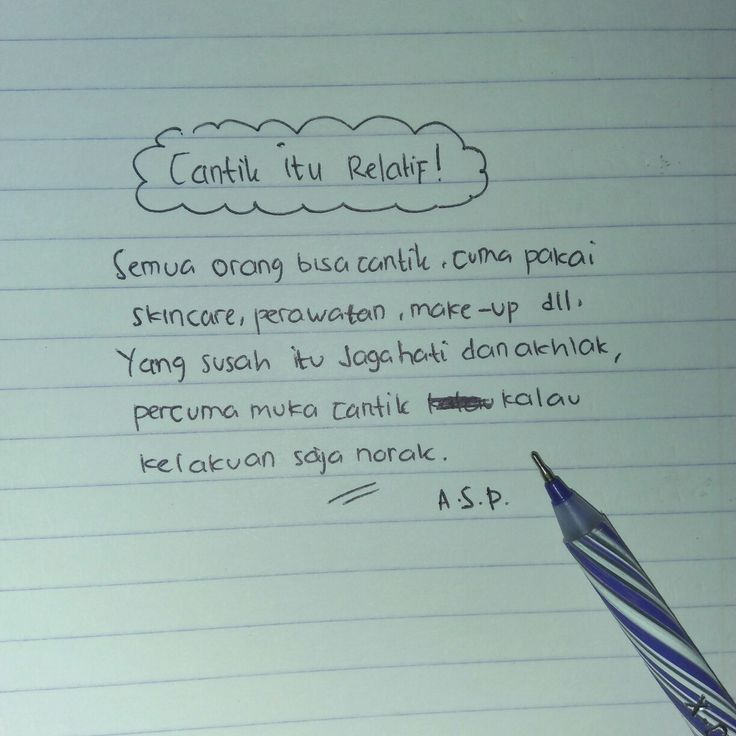 Cantik itu Relatif!
Semua orang bisa cantik, cuma pakai
skincare, perawatan, make-up dll.
Yang susah itu Jaga hati dan akhlak,
percuma muka cantik kalau
kelakuan saja norak.
A.S.P.